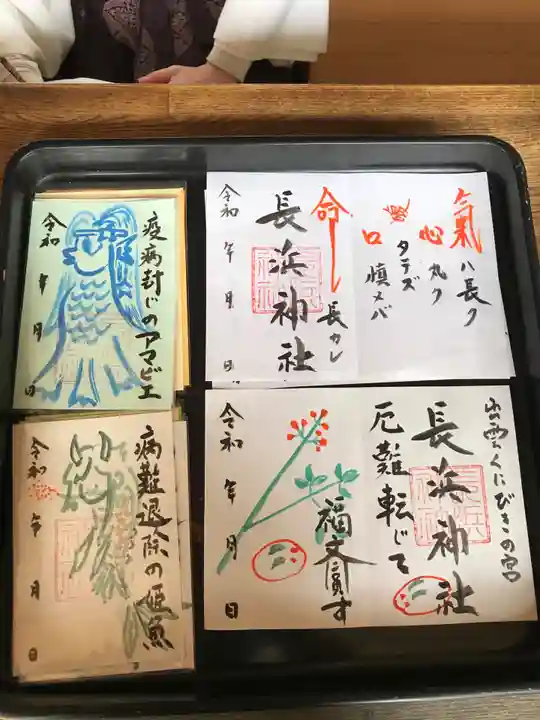 氣ハ長ク
心丸ク
腹タテズ
口慎メバ
命長カレ
長浜神社
令和 年 月 日
疫病封じのアマビエ
令和 年 月 日
出雲くにびきの宮
長浜神社
厄難転じて
福齎す
令和 年 月 日
病難退除の姫魚
令和 年 月 日